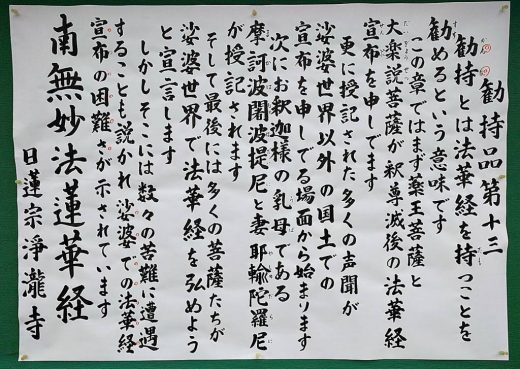 勧持品第十三
勧持とは法華経を持つことを
勧めるという意味です
この章ではまず薬王菩薩と
大楽説菩薩が釈尊滅後の法華経
宣布を申しでます
更に授記された多くの声聞が
娑婆世界以外の国土での
宣布を申しでる場面から始まります
次にお釈迦様の乳母である
摩訶波闍波提尼と妻耶輸陀羅尼に
が授記されます
そして最後には多くの菩薩たちが
娑婆世界で法華経を弘めよう
と宣言します
しかしそこには数々の苦難に遭遇
することも説かれ娑婆での法華経
宣布の困難さが示されています
南無妙法蓮華経
日蓮宗淨瀧寺